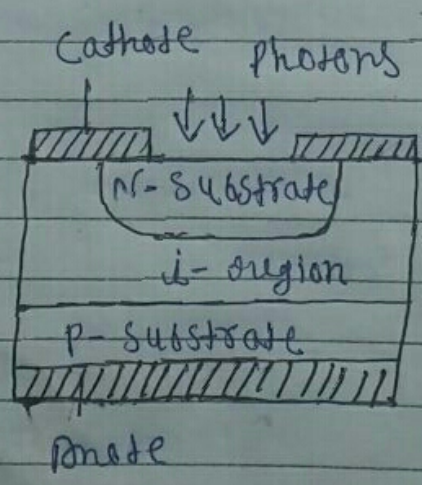 Cathode
Photons
n-Substrate
i-region
P-Substrate
Anode